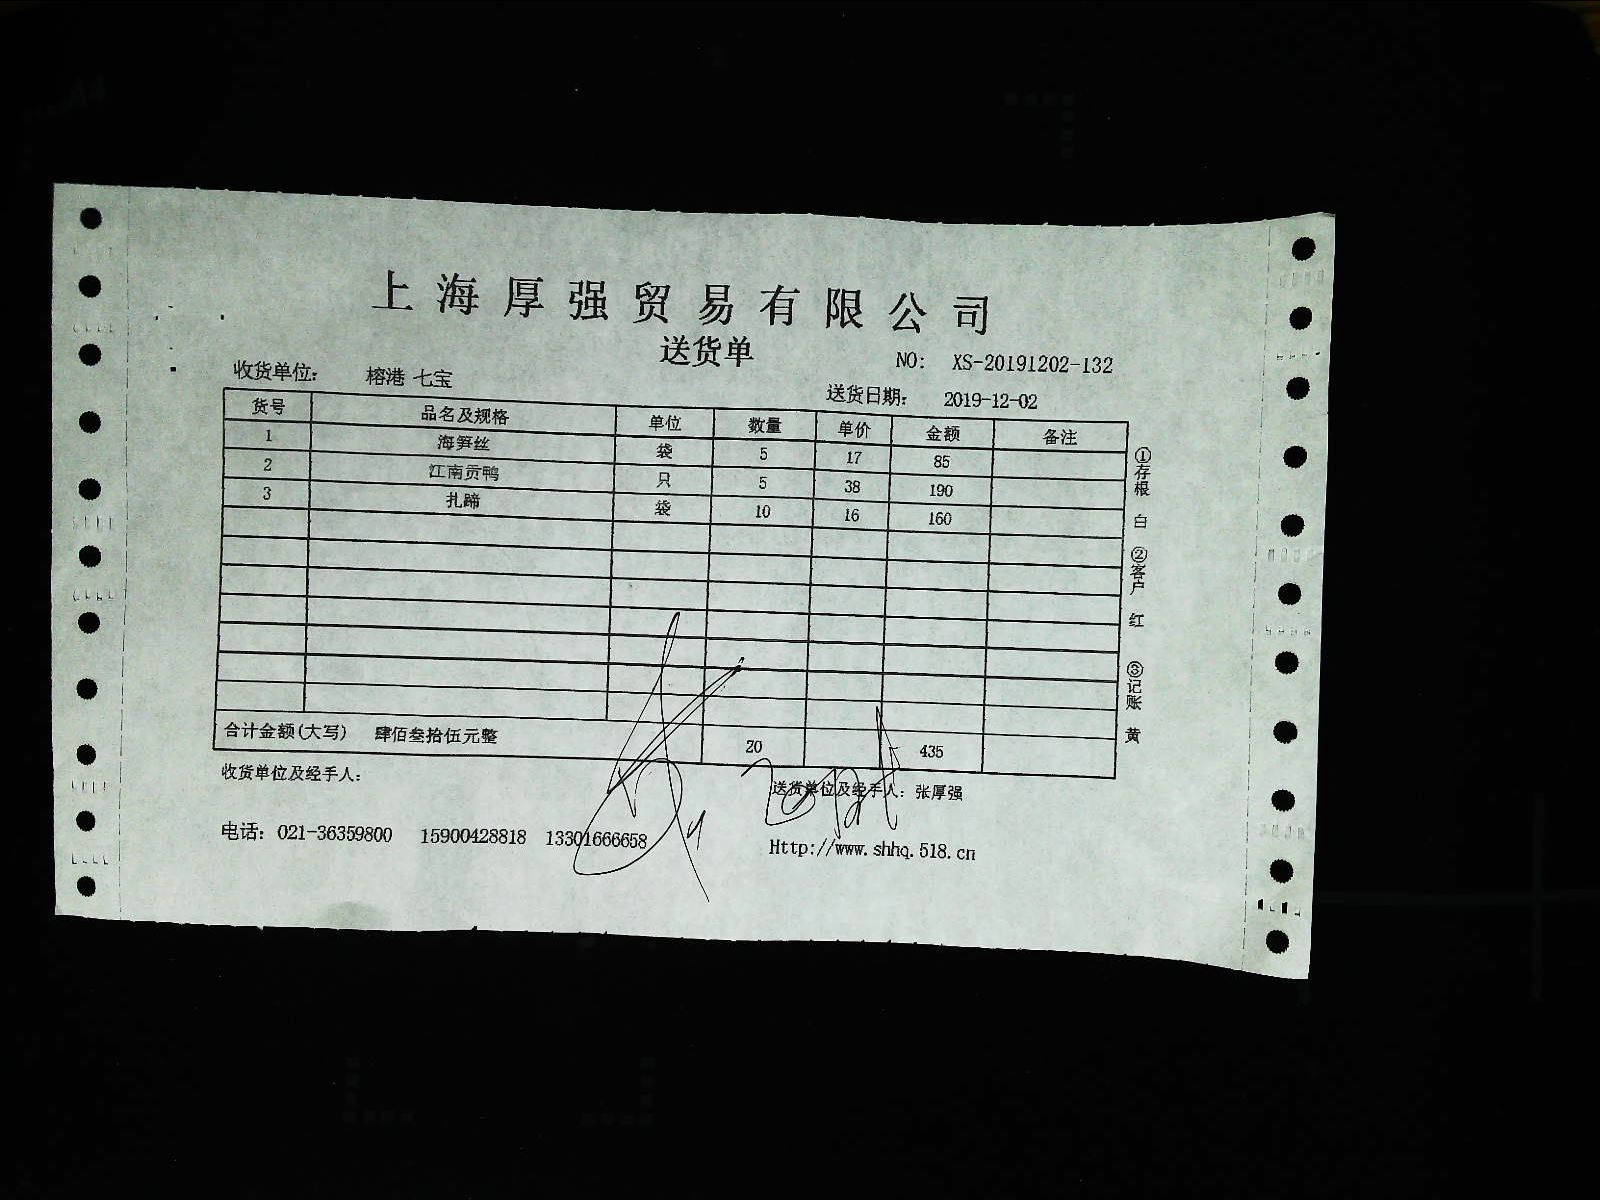 上海厚强贸易有限公司
送货单
NO: XS-20191202-132
收货单位: 榕港 七宝
送货日期: 2019-12-02
货号 品名及规格 单位 数量 单价 金额 备注
1 海笋丝 袋 5 17 85
2 江南贡鸭 只 5 38 190
3 扎蹄 袋 10 16 160
合计金额(大写) 肆佰叁拾伍元整 20 435
收货单位及经手人:
送货单位及经手人: 张厚强
电话: 021-36359800 15900428818 13301666658
Http://www.shhq.518.cn
①存根 白 ②客户 红 ③记账 黄